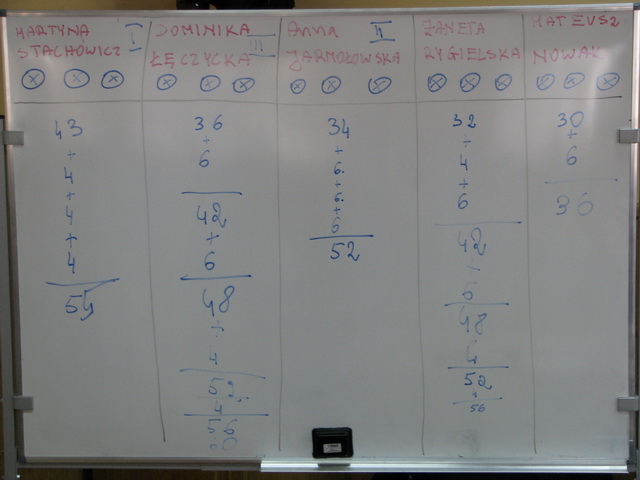 MARTYNA I
STACHOWICZ
43
+
4
+
4
+
4
54
DOMINIKA
ŁĘCZYCKA III
36
+
6
42
+
6
48
+
4
52
4
56
60
Anna II
JARMOŁOWSKA
34
+
6
+
6
+
6
52
ŻANETA
RYGIELSKA
32
+
4
+
6
42
+
6
48
+
4
52
+
56
MATEUSZ
NOWAK
30
+
6
36